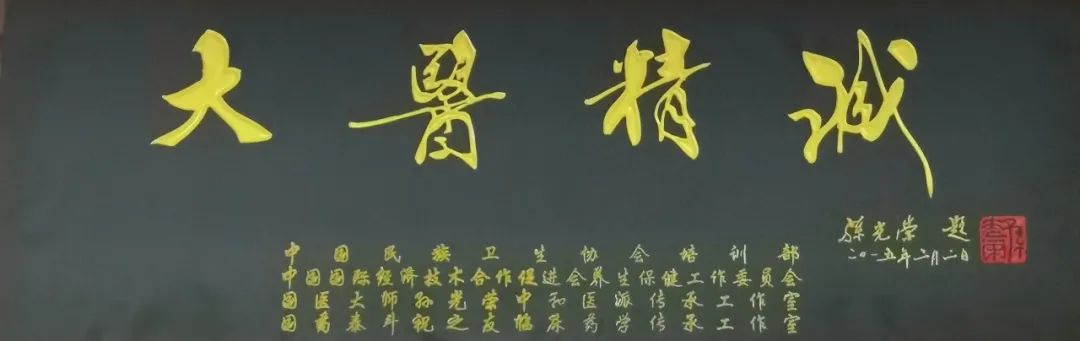 大醫精誠
孫光榮 題
二〇一五年二月二日
中国民族卫生协会培训部
中国国际经济技术合作促进会养生保健工作委员会
国医大师孙光荣中和医派传承工作室
国药泰斗祝之友临床药学传承工作室